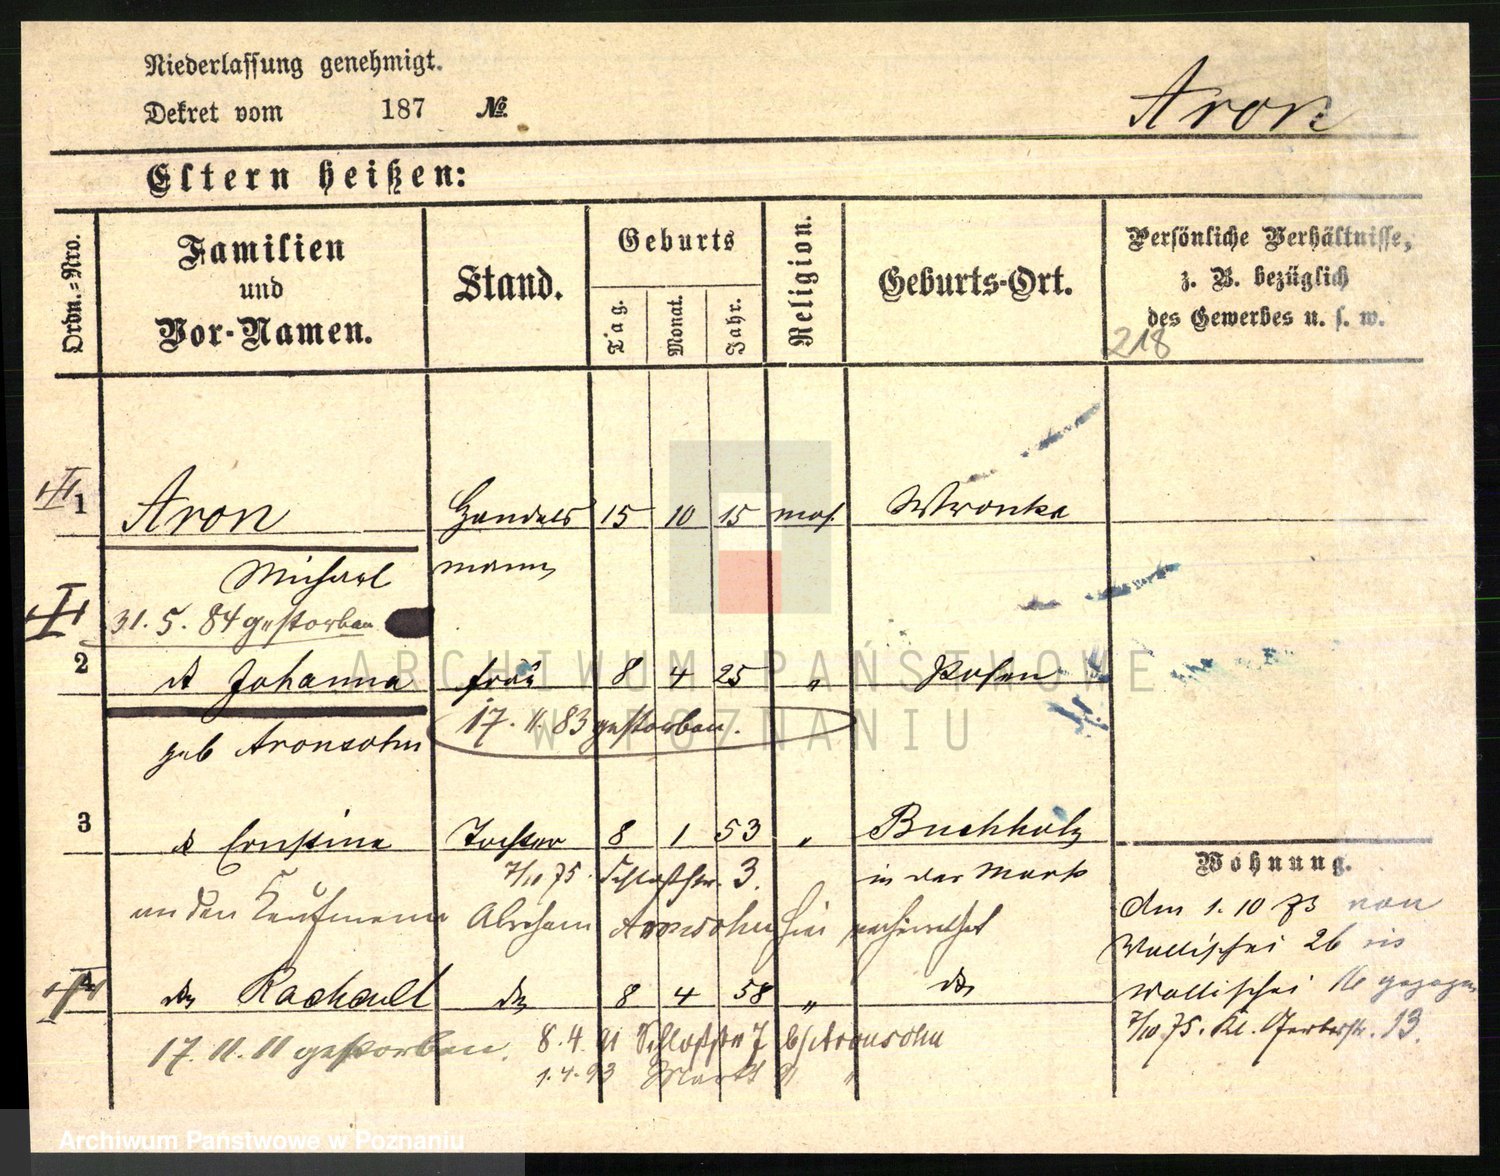 Niederlassung genehmigt.
Dekret vom 187 №
Aron
Eltern heißen:
Ordn.-Nro.
Familien und Vor-Namen.
Stand.
Geburts
Tag. Monat. Jahr.
Religion.
Geburts-Ort.
Persönliche Verhältnisse,
z. B. bezüglich
des Gewerbes u. s. w.
218
1 Aron Handels 15 10 15 mos. Wronke
Michael mann
31. 5. 84 gestorben
2 Johanna frau 8 4 25 " Posen
17. 11. 83 gestorben.
geb Aronsohn
3 Ernstine Tochter 8 1 53 " Buchholz
7/10 75. Schloßstr. 3. in der Mark
an den Kaufmann Abraham Aronsohn hier verheirathet
4 do Rachael do 8 4 58 " do
17. 11. 11 gestorben.
8. 4. 91 Schloßstr 7 b/Aronsohn
1. 4. 93 Markt " "
Wohnung.
Am 1. 10 73 von
Wallischei 26 
Wallischei gezogen
7/10 75. Kl. Gerberstr. 13.
ARCHIWUM PAŃSTWOWE
W POZNANIU
Archiwum Państwowe w Poznaniu